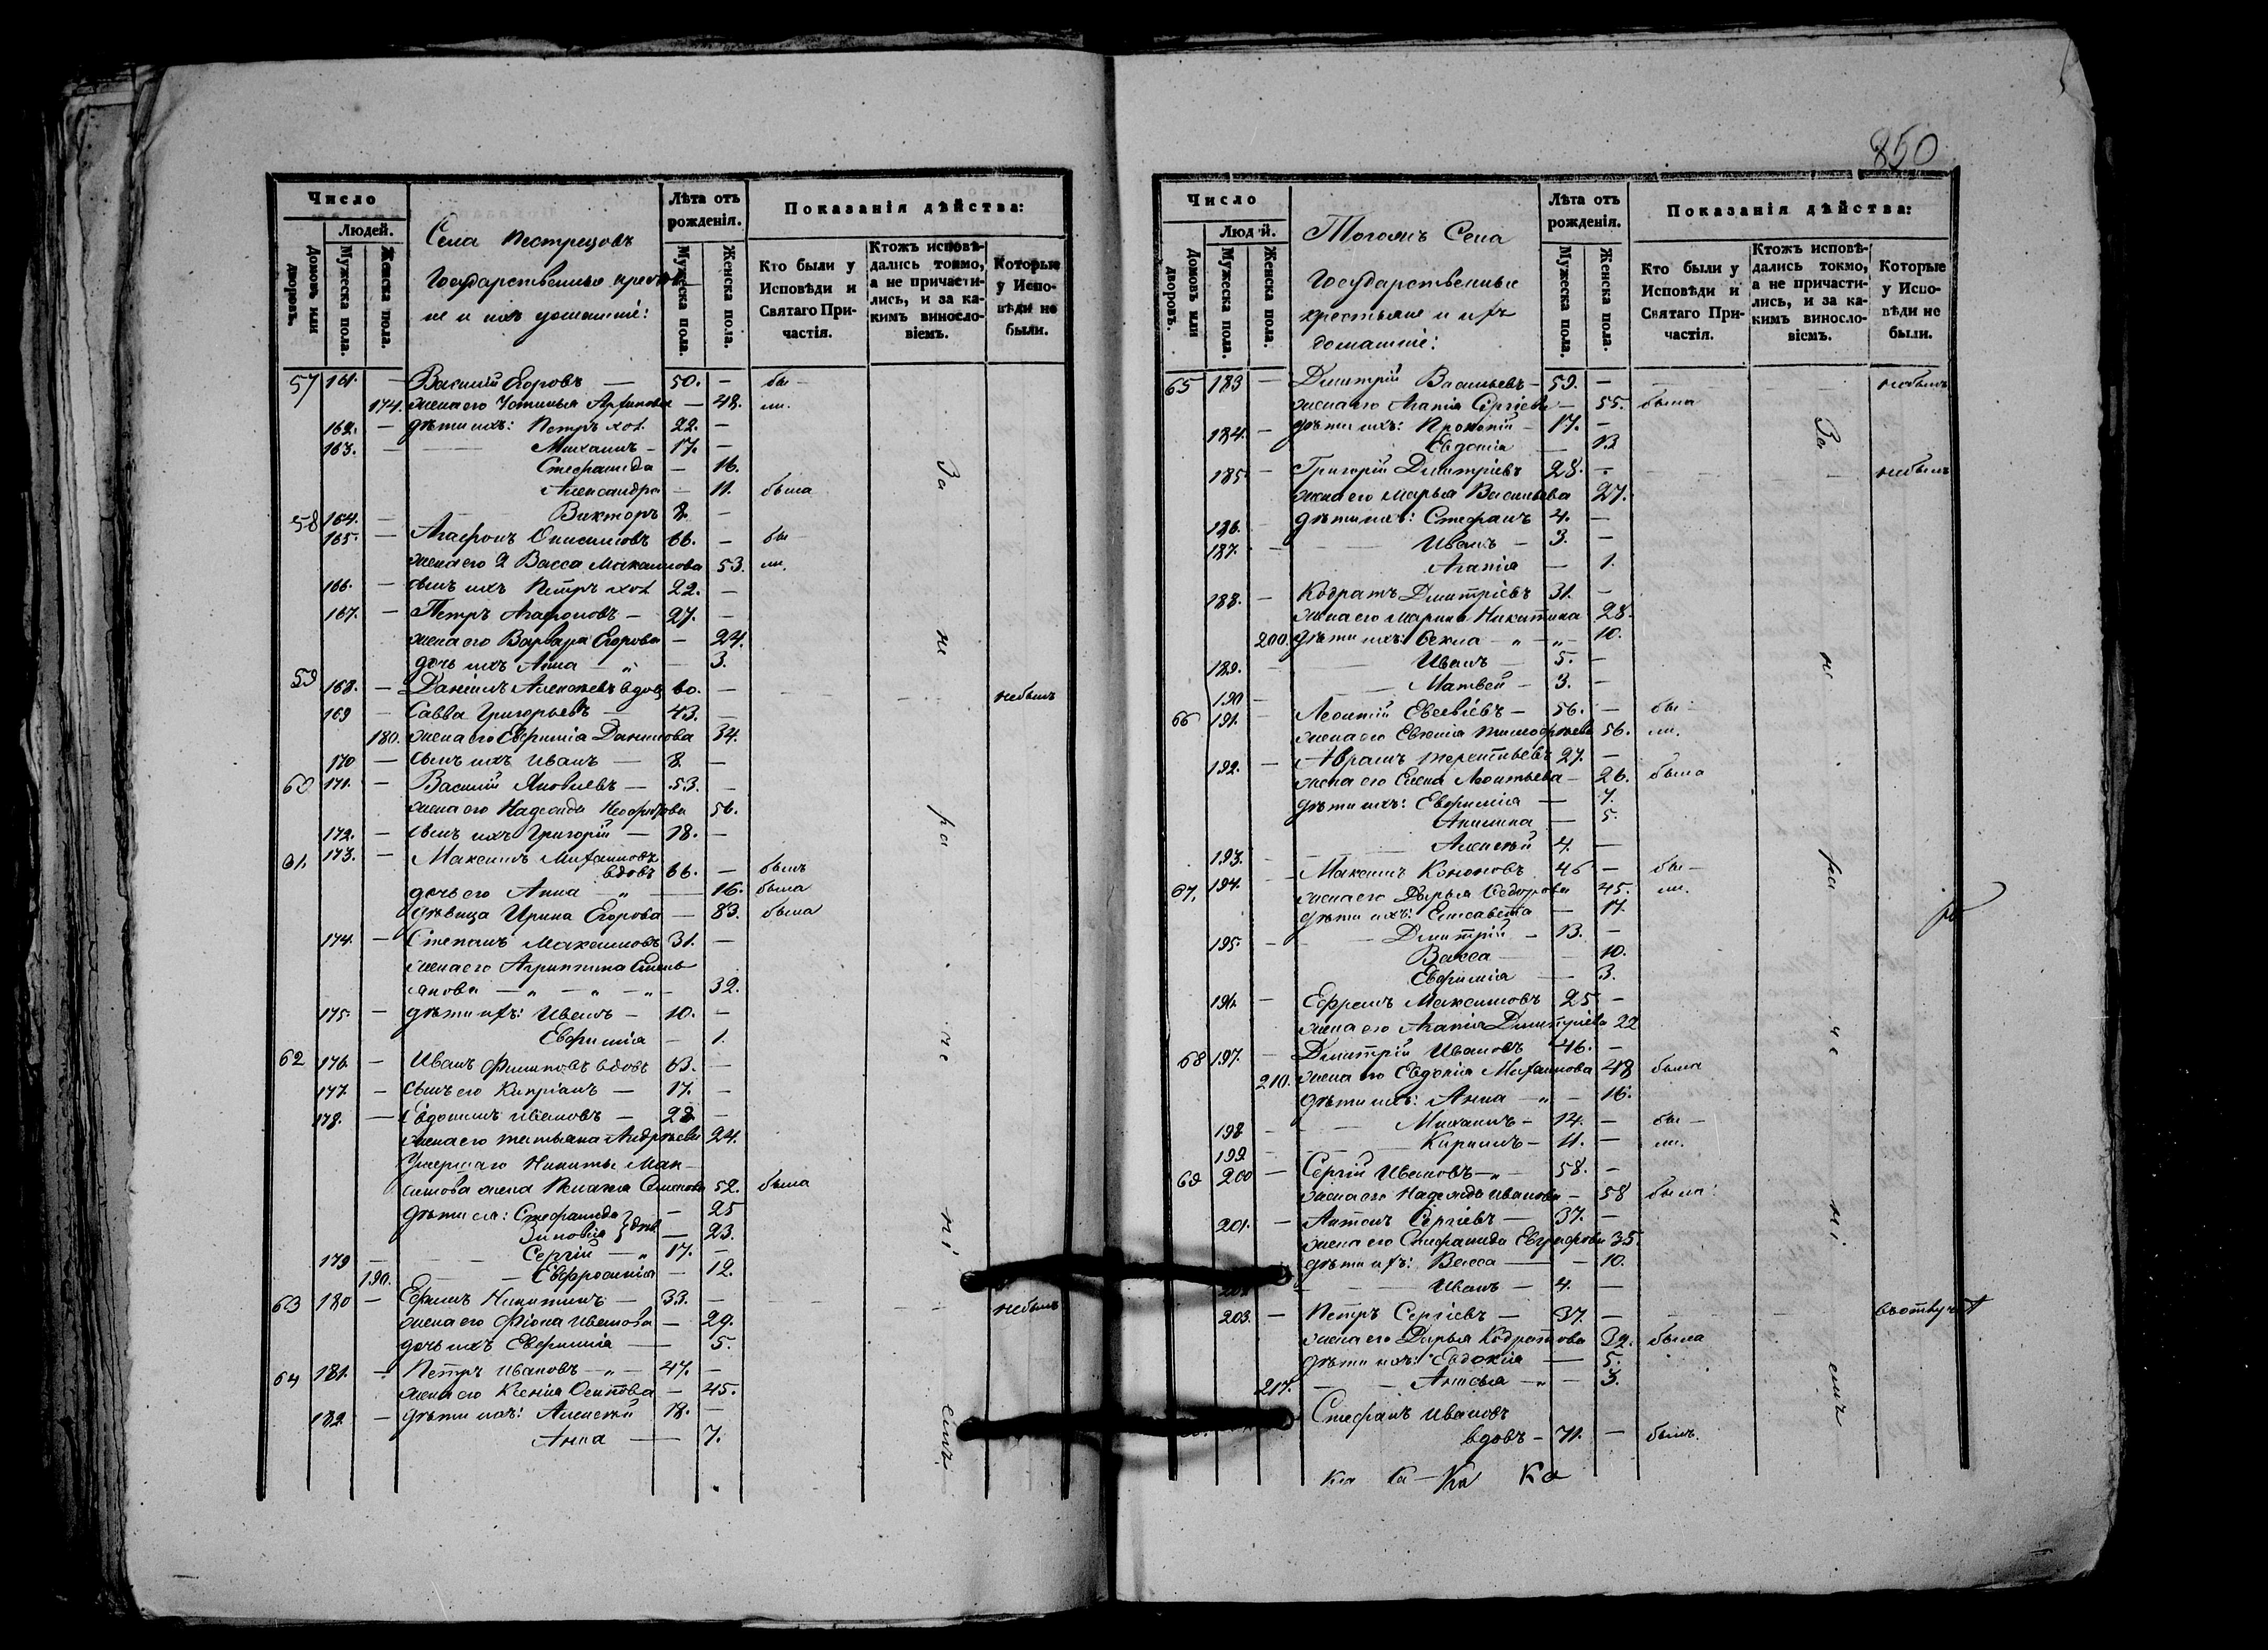 Число
Людей.
Домовъ или дворовъ.
Мужеска пола.
Женска пола.
Села Пестрецовъ
Государственные крестья-
не и ихъ домашніе:
Лѣта отъ рожденія.
Мужеска пола.
Женска пола.
Показанія дѣйства:
Кто были у Исповѣди и Святаго Причастія.
Ктожъ исповѣдались токмо, а не причастились, и за какимъ винословіемъ.
Которые у Исповѣди не были.
57 161. — Василій Егоровъ — 50. — бы-
174. жена его Устинья — 48. ли.
162. — дѣти ихъ: Петръ хол 22. —
163. — Михаилъ — 17. —
Стефанида — 16.
Александра — 11. была
58 164. — Викторъ 8. —
165. — Агафонъ Онисимовъ 66. — бы-
жена его 2 Васса Максимова 53. ли.
166. — сынъ ихъ Петръ хол 22. —
167. — Петръ Агафоновъ — 27. —
жена его Варвара Егорова — 24.
дочь ихъ Анна — „ — 3.
59 168. — Даніилъ Алексѣевъ вдов 60. — небылъ
169 — Савва Григорьевъ — 43. —
180. жена его Евфимія Данилова 34.
170 — сынъ ихъ Иванъ — 8. —
60 171. — Василій Яковлевъ — 53. —
жена его Надежда 56.
172. — сынъ ихъ Григорій — 18. —
61. 173. — Максимъ Михаиловъ
вдовъ 66. — былъ
дочь его Анна — „ — 16. была
дѣвица Ирина Егорова — 83. была
174. — Степанъ Максимовъ 31. —
жена его Агриппина Емель
янова — „ — „ — „ — 32.
175. — дѣти ихъ: Иванъ — 10. —
Евфимія — 1.
62 176. — Иванъ Филиповъ вдовъ 63. —
177. — сынъ его Кипріанъ — 17. —
178. — Евдокимъ Ивановъ — 28. —
жена его Татьяна Андреева 24.
Умершаго Никиты Мак-
симова жена Пелагея Семенова 52. была
дѣти ея: Стефанида — 25
Зиновія } дѣв — 23.
179 — Сергій — „ 17. —
190. — Евфросинія — 12.
63 180 — Ефимъ Никитинъ — 33. — небылъ
жена его Ѳіона Иванова — 29.
дочь ихъ Евфимія — 5.
64 181. — Петръ Ивановъ — „ — 47. —
жена его Ксенія Осипова — 45.
182. — дѣти ихъ: Алексѣй 18. —
Анна — 7.
За не ра че ні емъ
850
Число
Людей.
Домовъ или дворовъ.
Мужеска пола.
Женска пола.
Тогожъ Села
Государственные
крестьяне и ихъ
домашніе:
Лѣта отъ рожденія.
Мужеска пола.
Женска пола.
Показанія дѣйства:
Кто были у Исповѣди и Святаго Причастія.
Ктожъ исповѣдались токмо, а не причастились, и за какимъ винословіемъ.
Которые у Исповѣди не были.
65 183 — Дмитрій Васильевъ — 59. — небылъ
жена его Агапія Сергіева — 55. была
184. — дѣти ихъ: Прокопій — 17. —
Евдокія — 13
185 — Григорій Дмитріевъ 28. — небылъ
жена его Марья Васильева 27.
186. — дѣти ихъ: Стефанъ 4. —
187. — Иванъ — 3. —
Агапія — 1.
188. — Кодратъ Дмитріевъ 31. —
жена его Марина Никитина 28.
200. дѣти ихъ: — „ — „ — 10.
189. — Иванъ — 5. —
190 — Матвей — 3. —
66 191. — Леонтій Евсевіевъ — 56. — бы-
жена его Евгенія Тимофеева 56. ли.
192. — Аврамъ Терентьевъ 27. —
жена его Елена Леонтьева — 26. была
дѣти ихъ: Евфимія — 7.
Акилина — 5.
193. — Алексѣй 4. —
67. 194. — Максимъ Кононовъ 46 — бы-
жена его Дарья Ѳедорова 45. ли.
дѣти ихъ: Елисавета — 17.
195. — Дмитрій — 13. —
Васса — 10.
Евфимія — 3.
196. — Ефремъ Максимовъ 25 —
жена его Агапія Дмитріева 22
68 197. — Дмитрій Ивановъ 46. —
210. жена его Евдокія Михаилова 48 была
дѣти ихъ: Анна — „ — 16.
198 — Михаилъ — 14. — бы-
199 — Кирилъ — 11. — ли.
69 200 — Сергій Ивановъ — „ — 58. —
жена его Надежда Иванова — 58 была
201. — Антонъ Сергіевъ — 37. —
жена его Стефанида Евграфова 35.
дѣти ихъ: Васса — 10.
202 — Иванъ — 4. —
203. — Петръ Сергіевъ — 37. — в отлуч
жена его Дарья Кодратова 32. была
дѣти ихъ: Евдокія — 5.
217. — Анисья — „ — 3.
Стефанъ Ивановъ
вдовъ — 71. — былъ.
За не ра че ні емъ
ка ка — ка ка